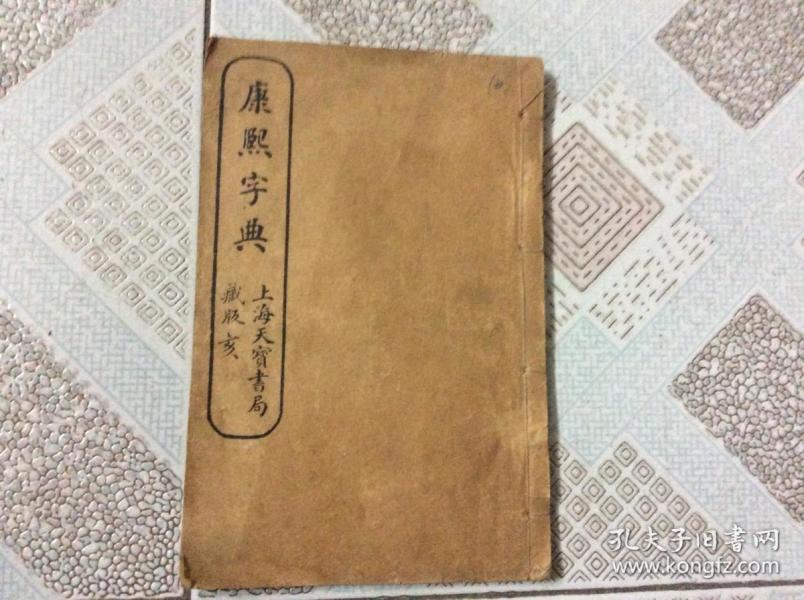 康熙字典
上海天寳書局
藏版 亥
孔夫子旧書网
www.kongfz.com